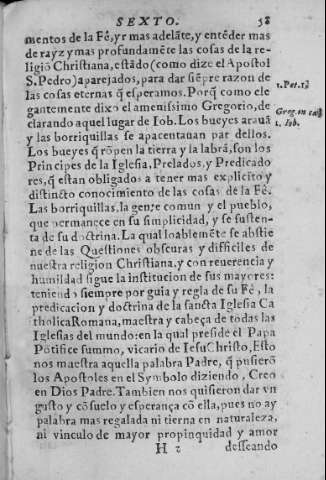 SEXTO. 58
mentos de la Fé, yr mas adelãte, y entéder mas
de rayz y mas profundamẽte las cosas de la re-
ligiõ Christiana, estãdo (como dize el Apostol
S. Pedro) aparejados, para dar siẽpre razon de
las cosas eternas q̃ esperamos. Porq̃ como ele
gantemente dixo el amenissimo Gregorio, de-
clarando aquel lugar de Iob. Los bueyes arauã
y las borriquillas se apacentauan par dellos.
Los bueyes q̃ rõpen la tierra y la labrã, son los
Principes de la Iglesia, Prelados, y Predicado
res, q̃ estan obligados a tener mas explicito y
distincto conocimiento de las cosas de la Fé.
Las borriquillas, la gente comun y el pueblo,
que permanece en su simplicidad, y se susten-
ta de su doctrina. La qual loablemẽte se abstie
ne de las Questiones obscuras y difficiles de
nuestra religion Christiana, y con reuerencia y
humildad sigue la institucion de sus mayores:
teniendo siempre por guia y regla de su Fé, la
predicacion y doctrina de la sancta Iglesia Ca
tholica Romana, maestra y cabeça de todas las
Iglesias del mundo: en la qual preside el Papa
Põtifice summo, vicario de Iesu Christo. Esto
nos maestra aquella palabra Padre, q̃ pusierõ
los Apostoles en el Symbolo diziendo, Creo
en Dios Padre. Tambien nos quisieron dar vn
gusto y cõsuelo y esperança cõ ella, pues no ay
palabra mas regalada ni tierna en naturaleza,
ni vinculo de mayor propinquidad y amor
H 2 desseando
1. Pet. 3
Greg. en
1. Iob.